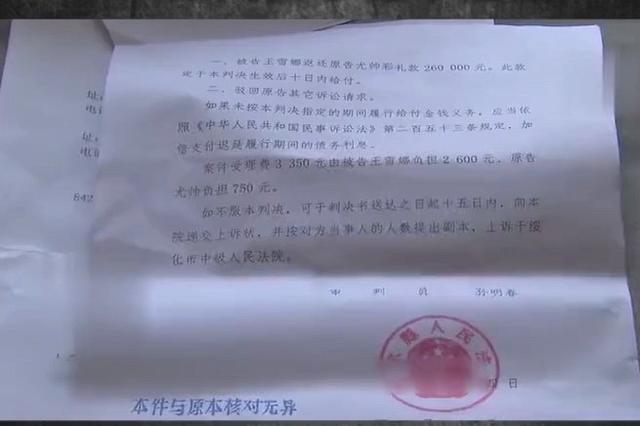 一、被告王雪娜返还原告尤帅彩礼款260 000元。此款
定于本判决生效后十日内给付。
二、驳回原告其它诉讼请求。
如果未按本判决指定的期间履行给付金钱义务，应当依
照《中华人民共和国民事诉讼法》第二百五十三条规定，加
倍支付迟延履行期间的债务利息。
案件受理费3 350元由被告王雪娜负担2 600元，原告
尤帅负担750元。
如不服本判决，可于判决书送达之日起十五日内，向本
院递交上诉状，并按对方当事人的人数提出副本，上诉于绥
化市中级人民法院。
审 判 员 孙明春
县人民法
月 日
本件与原本核对无异
址
电
址
电
842